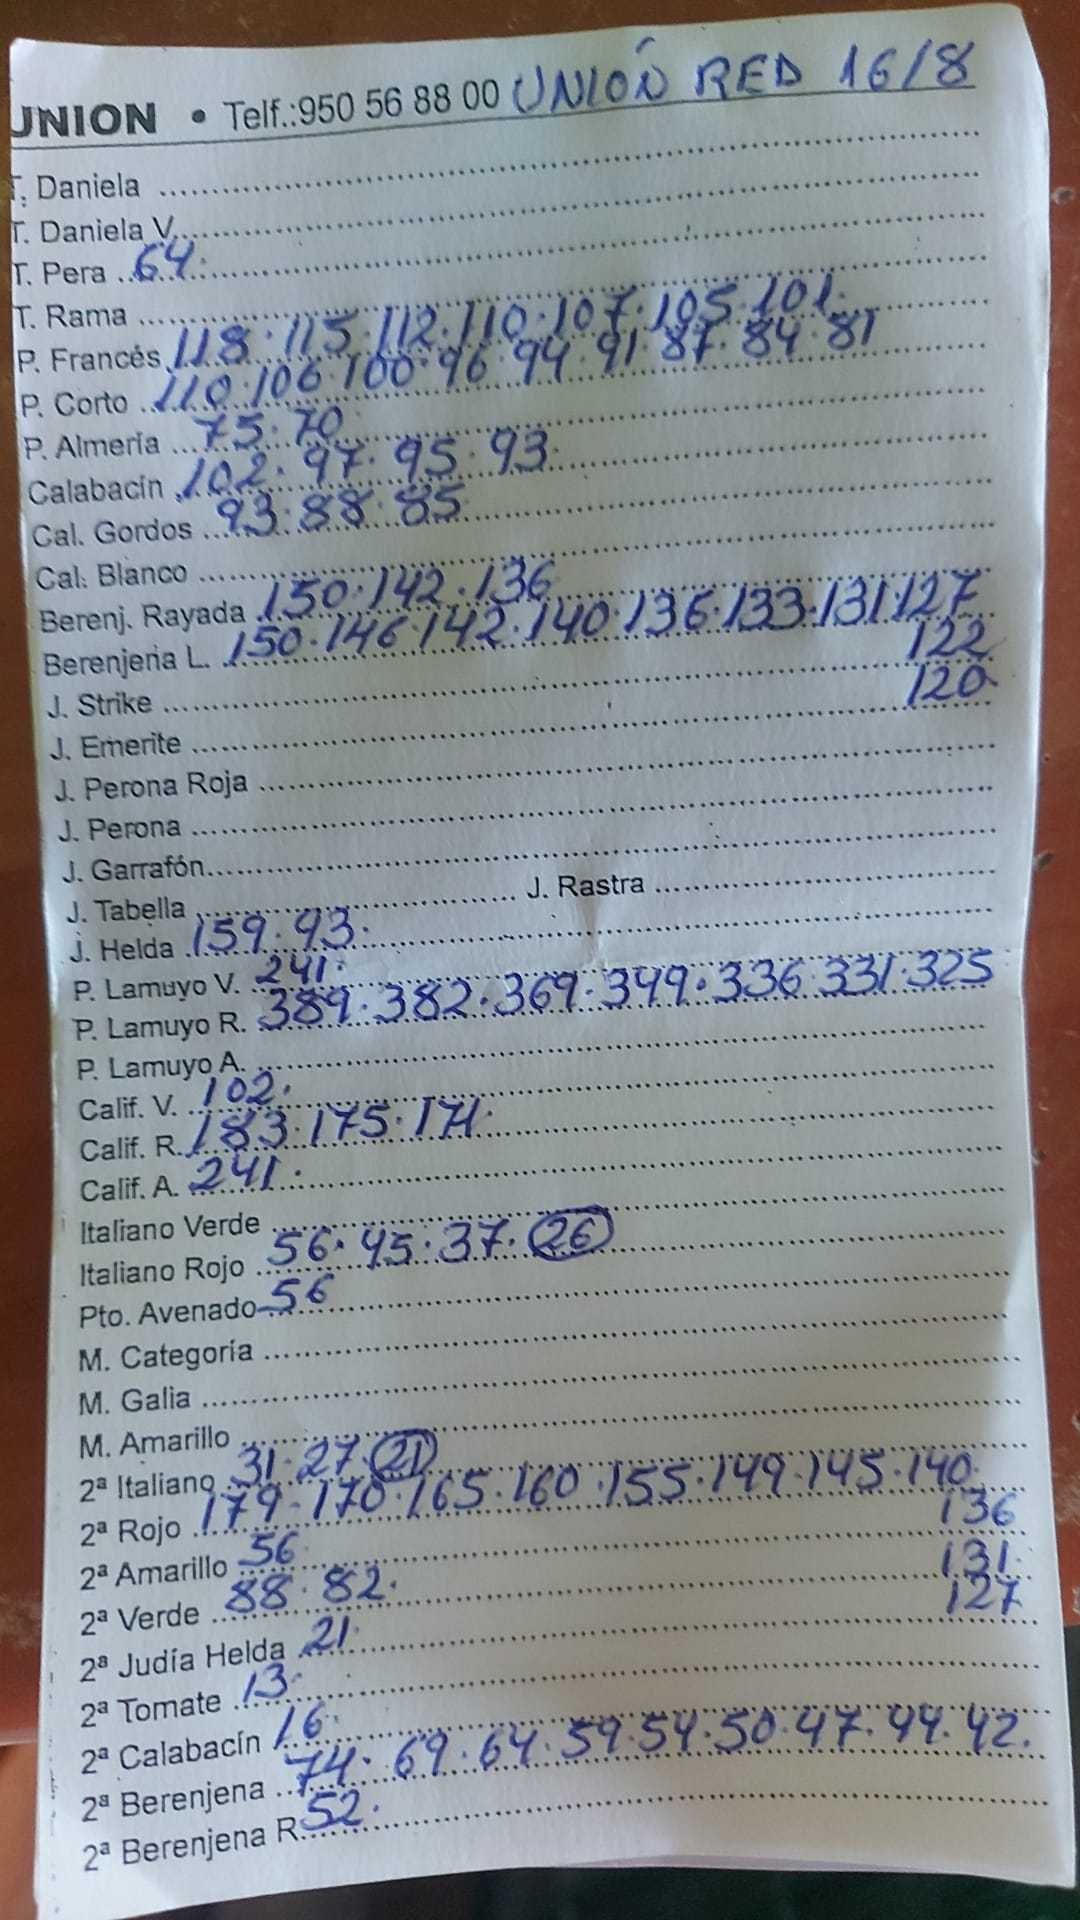 UNION • Telf.:950 56 88 00 UNIÓN RED 16/8
T. Daniela
T. Daniela V.
T. Pera 64.
T. Rama
P. Francés 118.115.112.110.107.105.101.
P. Corto 110.106.100.96.94.91.87.84.81
P. Almería 75.70
Calabacín 102.97.95.93
Cal. Gordos 93.88.85
Cal. Blanco
Berenj. Rayada 150.142.136
Berenjena L. 150.146.142.140.136.133.131.127
122
J. Strike
120
J. Emerite
J. Perona Roja
J. Perona
J. Garrafón
J. Tabella J. Rastra
J. Helda 159.93.
P. Lamuyo V. 241.
P. Lamuyo R. 389.382.369.349.336.331.325
P. Lamuyo A.
Calif. V. 102.
Calif. R. 183.175.171.
Calif. A. 241.
Italiano Verde
Italiano Rojo 56.45.37.26
Pto. Avenado 56
M. Categoría
M. Galia
M. Amarillo
2ª Italiano 31.27.21
2ª Rojo 179.170.165.160.155.149.145.140.
136
2ª Amarillo 56
131.
2ª Verde 88.82.
127
2ª Judía Helda 21.
2ª Tomate 13.
2ª Calabacín 16.
2ª Berenjena 74.69.64.59.54.50.47.44.42.
2ª Berenjena R. 52.